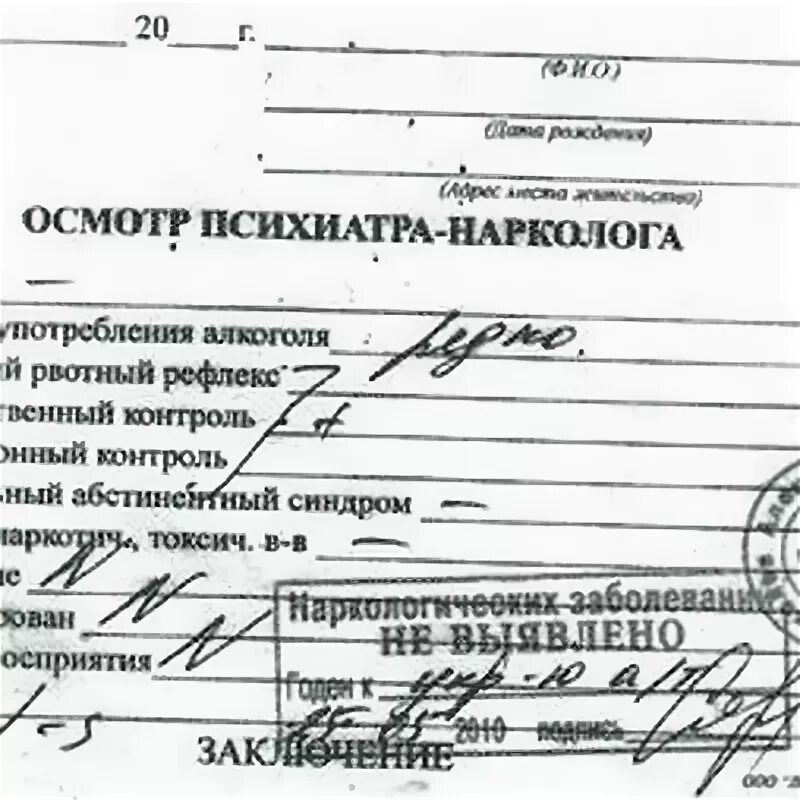 20 г.
(Ф.И.О.)
(Дата рождения)
(Адрес места жительства)
ОСМОТР ПСИХИАТРА-НАРКОЛОГА
употребления алкоголя редко.
й рвотный рефлекс
твенный контроль +
онный контроль
ьный абстинентный синдром —
наркотич., токсич. в-в —
ие N
рован N
осприятия N
Наркологических заболеваний
НЕ ВЫЯВЛЕНО
Годен к
2010 подпись
ЗАКЛЮЧЕНИЕ
ООО